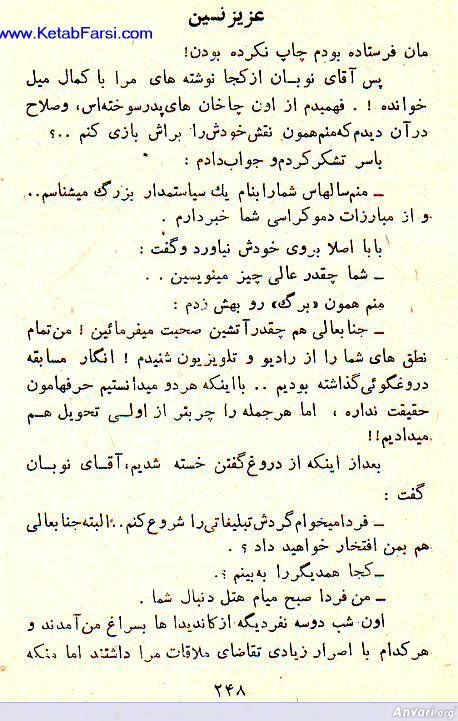 عزیز نسین
www.KetabFarsi.com
مان فرستاده بودم چاپ نکرده بودن!
پس آقای نوبان از کجا نوشته های مرا با کمال میل
خوانده ! . فهمیدم از اون چاخان های پدرسوخته‌اس، وصلاح
در آن دیدم که منم همون نقش خودش را براش بازی کنم ..؟
باسر تشکر کردم و جواب دادم :
ـ منم سالهاس شمارا بنام یك سیاستمدار بزرگ میشناسم..
و از مبارزات دموکراسی شما خبر دارم .
بابا اصلا بروی خودش نیاورد وگفت :
ـ شما چقدر عالی چیز مینویسین . .
منم همون «برگ» رو بهش زدم :
ـ جنابعالی هم چقدر آتشین صحبت میفرمائین ! من تمام
نطق های شما را از رادیو و تلویزیون شنیدم ! انگار مسابقه
دروغگوئی گذاشته بودیم .. با اینکه هر دو میدانستیم حرفهامون
حقیقت نداره ، اما هرجمله را چربتر از اولی تحویل هم
میدادیم!!
بعداز اینکه از دروغ گفتن خسته شدیم، آقای نوبان
گفت :
ـ فردا میخوام گردش تبلیغاتی را شروع کنم.. البته جنابعالی
هم بمن افتخار خواهید داد ؟ .
ـ کجا همدیگر را به بینم ؟.
ـ من فردا صبح میام هتل دنبال شما .
اون شب دوسه نفر دیگه از کاندیدا ها بسراغ من آمدند و
هر کدام با اصرار زیادی تقاضای ملاقات مرا داشتند اما منکه
۲۴۸
Anvari.org